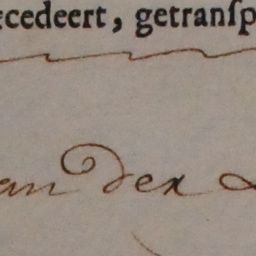 cedeert, getranſp
an der